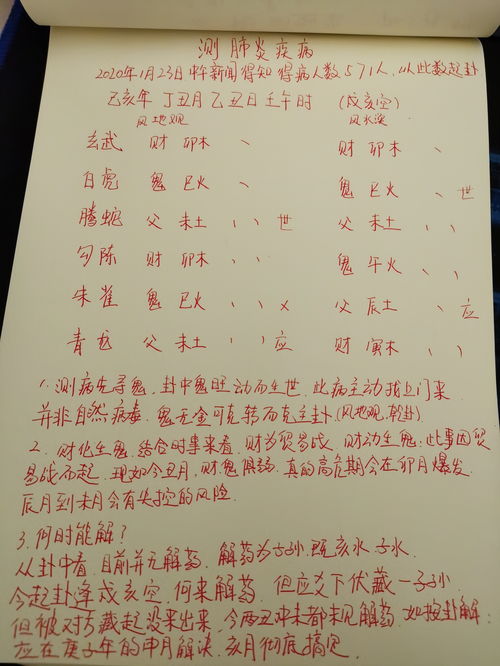 测肺炎疾病
2020年1月23日中午新闻得知得病人数571人,以此数起卦
己亥年 丁丑月 乙丑日 壬午时 (戌亥空)
风地观 风水涣
玄武 财 卯木 、 财 卯木 、
白虎 鬼 巳火 、 鬼 巳火 、世
腾蛇 父 未土 、、世 父 未土 、、
勾陈 财 卯木 、、 鬼 午火 、、
朱雀 鬼 巳火 、、 x 父 辰土 、 应
青龙 父 未土 、、应 财 寅木 、、
1、测病先寻鬼,卦中鬼旺动而生世,此病主动找上门来
并非自然病毒,鬼无金可克转而克主卦(风地观,乾卦)
2、财化生鬼,结合时事来看,财为贸易战,财动生鬼:此事因贸
易战而起,现如今丑月,财鬼俱弱,真的高危期会在卯月爆发,
辰月到未月会有失控的风险
3、何时能解?
从卦中看,目前并无解药,解药为子孙,既亥水、子水,
今起卦逢戌亥空,何来解药,但应爻下伏藏一子孙
但被对方藏起没来出来,今两丑冲未都未见解药,如按卦解:
应在庚子年的申月解决,亥月彻底搞定